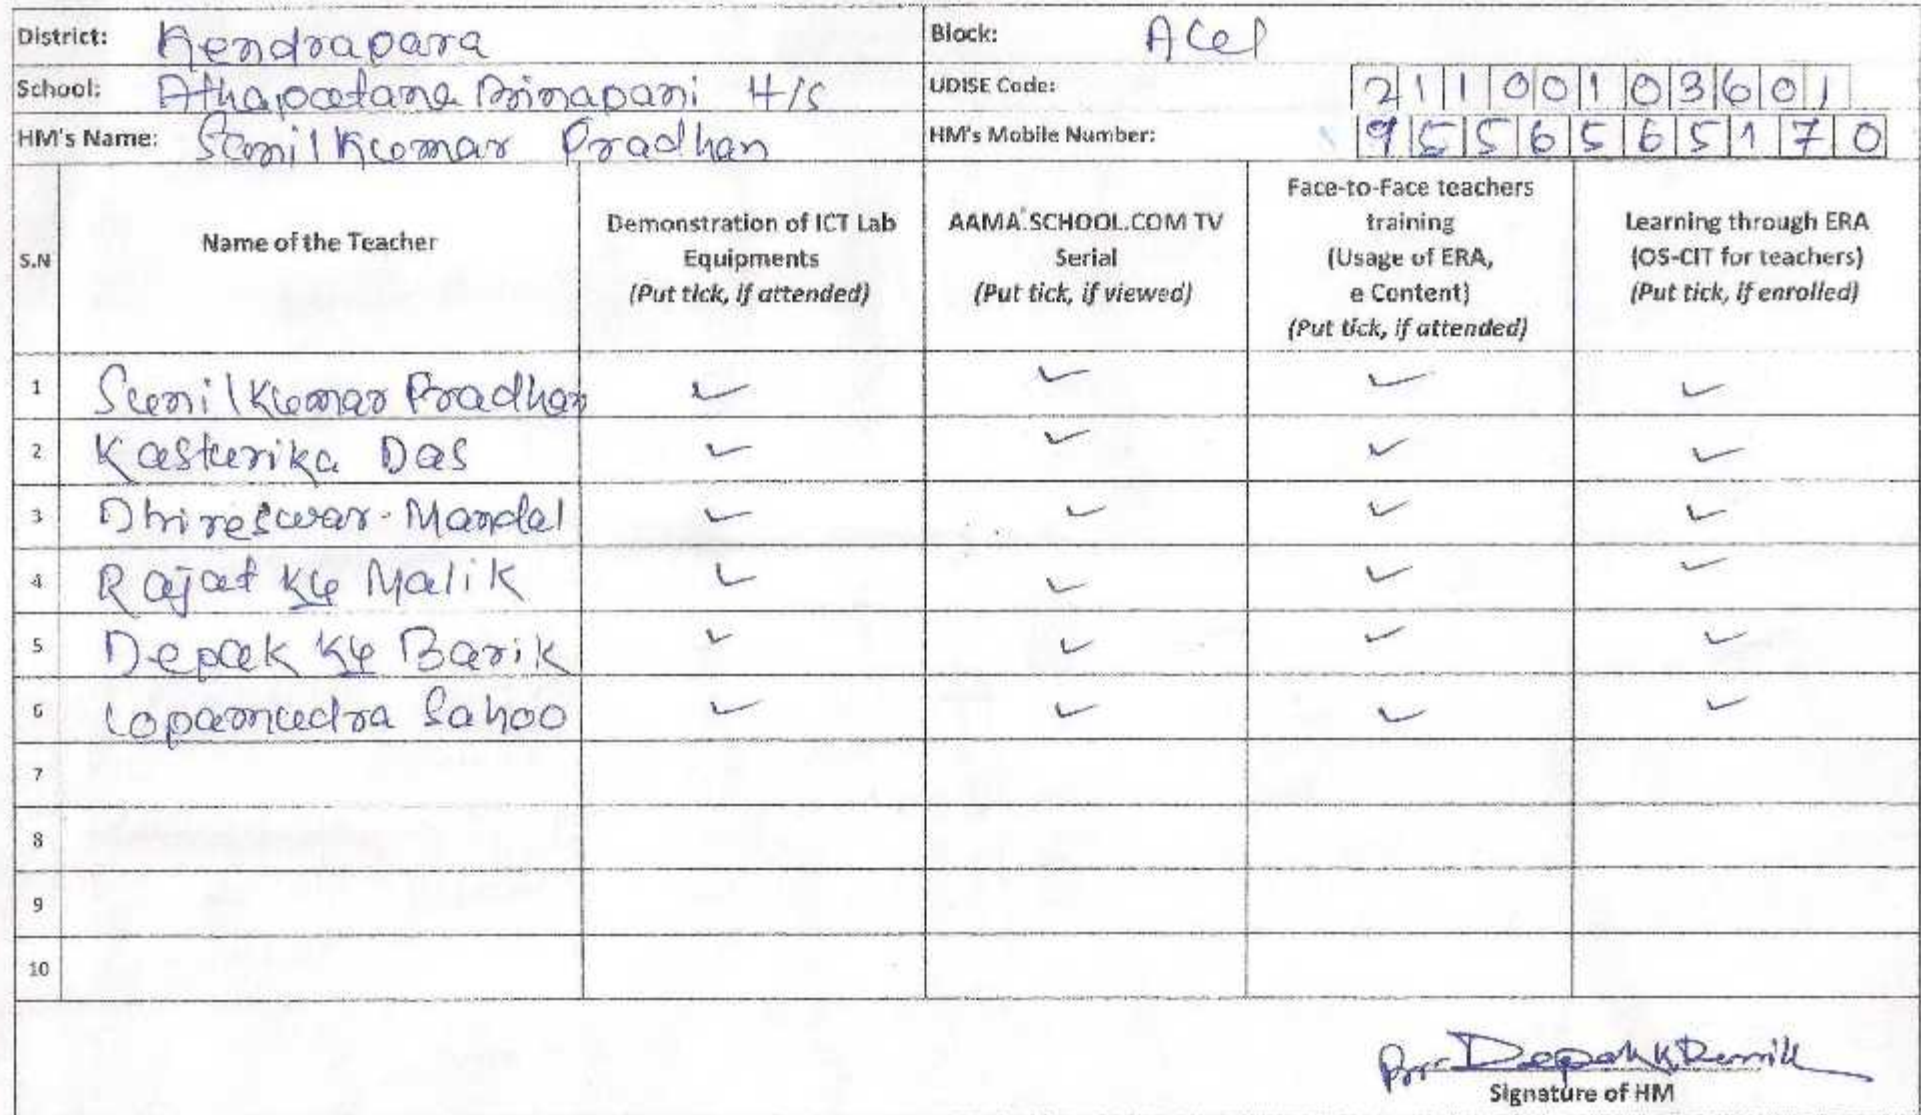 District: Kendrapara Block: Acel
School: Athapatana Binapani H/S UDISE Code: 21100103601
HM's Name: Sunil Kumar Pradhan HM's Mobile Number: 9556565170
S.N Name of the Teacher Demonstration of ICT Lab Equipments (Put tick, if attended) AAMA SCHOOL.COM TV Serial (Put tick, if viewed) Face-to-Face teachers training (Usage of ERA, e Content) (Put tick, if attended) Learning through ERA (OS-CIT for teachers) (Put tick, if enrolled)
1 Sunil Kumar Pradhan ✓ ✓ ✓ ✓
2 Kasturika Das ✓ ✓ ✓ ✓
3 Dhireswar Mandal ✓ ✓ ✓ ✓
4 Rajat Ku Malik ✓ ✓ ✓ ✓
5 Depak Ku Barik ✓ ✓ ✓ ✓
6 Lopamudra Sahoo ✓ ✓ ✓ ✓
7
8
9
10
Deepak
Signature of HM